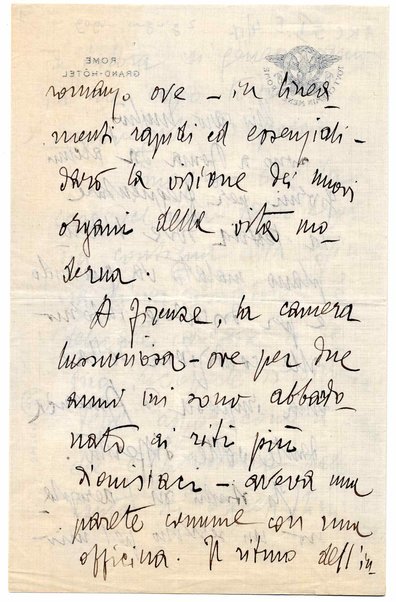 ROME
GRAND-HÔTEL
romano, ove – in linea-
menti rapidi ed essenziali –
darò la visione dei nuovi
organi della vita mo-
derna.
A Firenze, la camera
lussuriosa – ove per due
anni mi sono abbando-
nato ai riti più
dionisiaci – aveva una
parete comune con una
officina. Il ritmo dell'in-